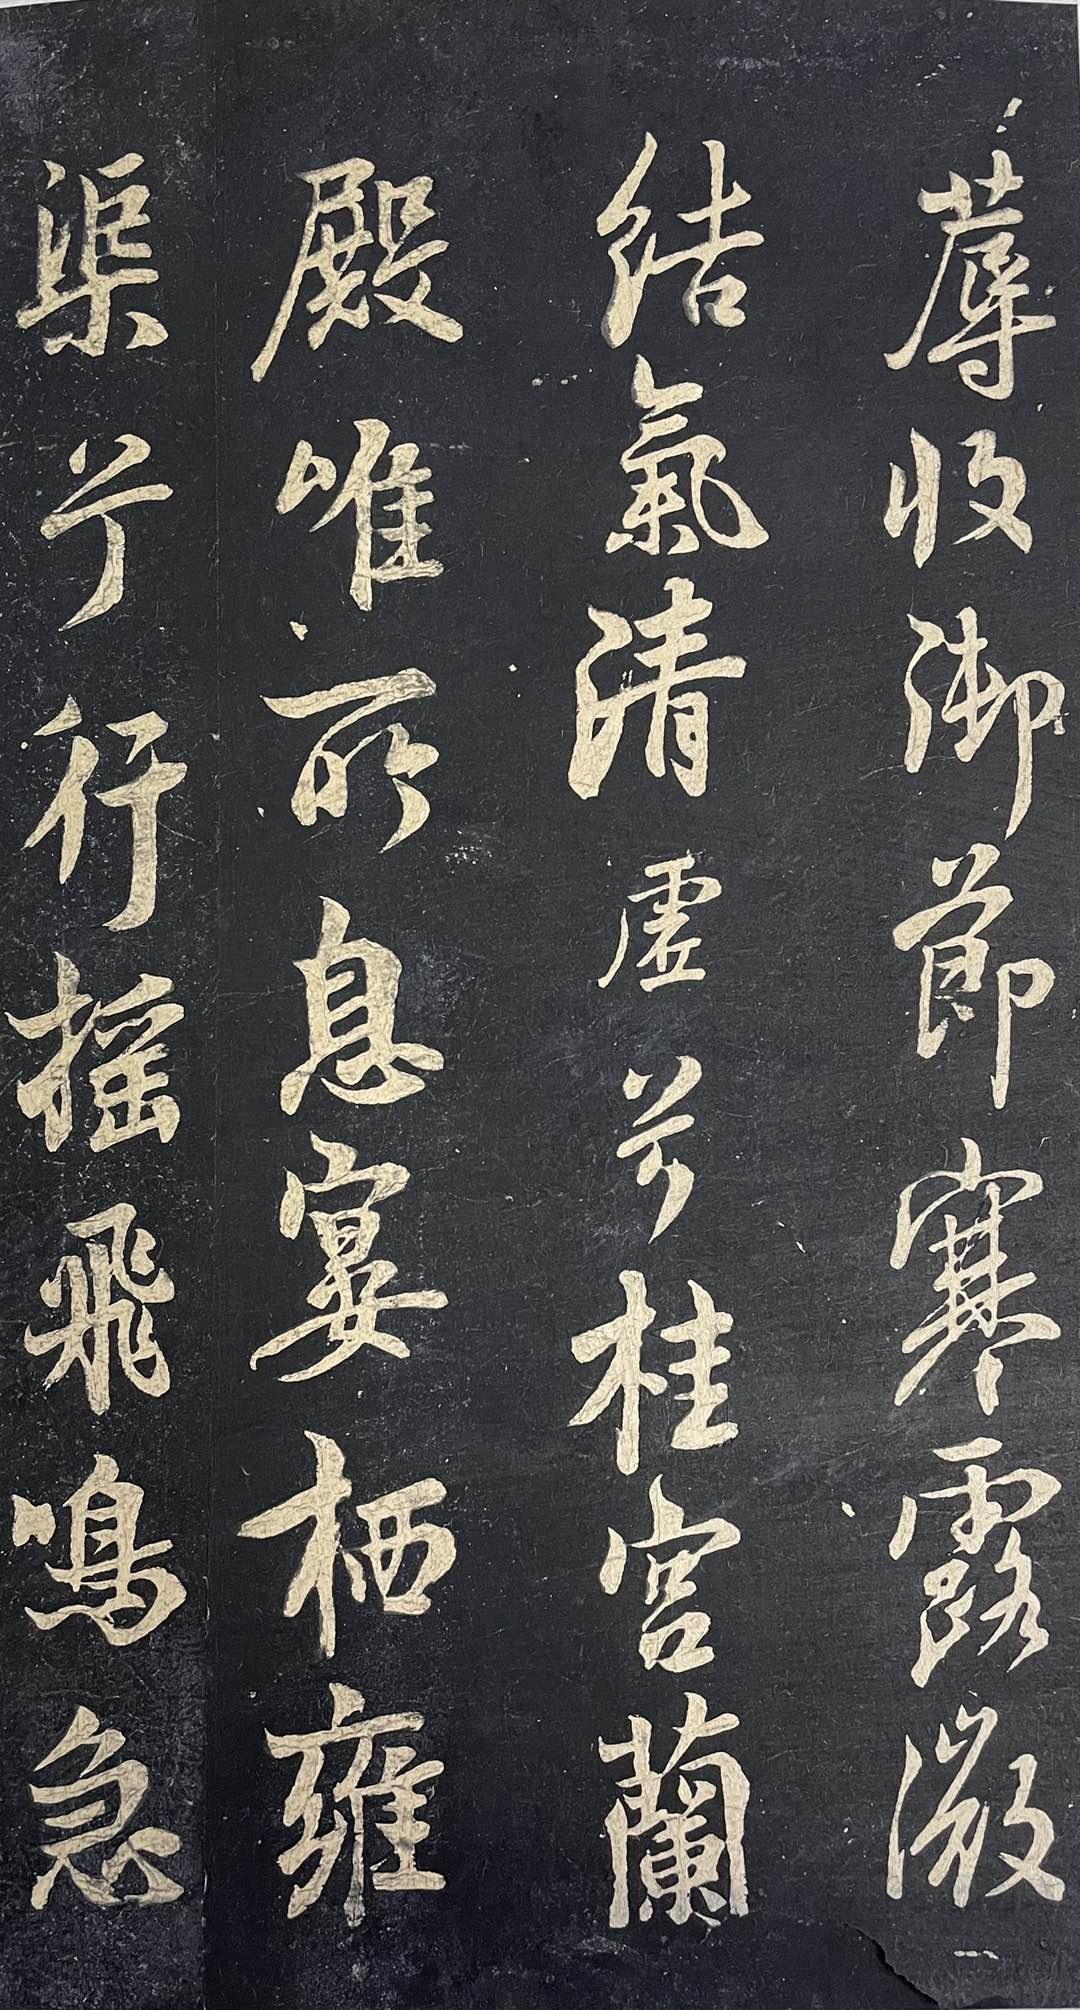 蓐收御節寒露微
結氣清虛兮桂宮蘭
殿唯所息宴栖雍
渠兮行搖飛鳴急